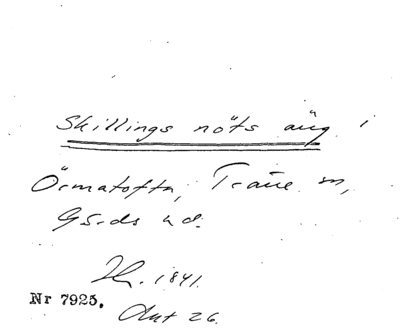 Skillings nöts äng i
Örmatofta, Trane sn,
Gärds hd.
1841.
Nr 7925.
Aut 26.